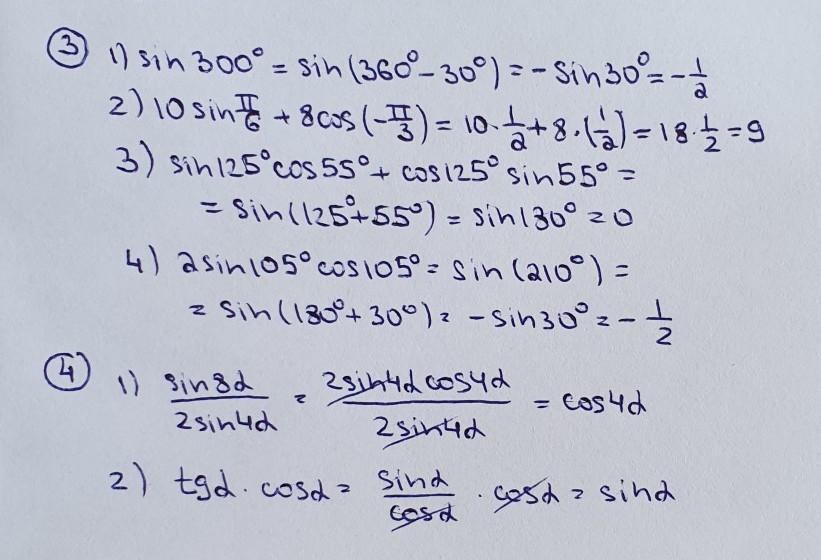 ③ 1) sin 300° = sin(360° - 30°) = - sin 30° = - 1/2
2) 10 sin π/6 + 8 cos(-π/3) = 10 · 1/2 + 8 · (1/2) = 18 · 1/2 = 9
3) sin 125° cos 55° + cos 125° sin 55° =
= sin(125° + 55°) = sin 180° = 0
4) 2 sin 105° cos 105° = sin(210°) =
= sin(180° + 30°) = - sin 30° = - 1/2
④ 1) sin 8α / 2 sin 4α = 2 sin 4α cos 4α / 2 sin 4α = cos 4α
2) tg α · cos α = sin α / cos α · cos α = sin α